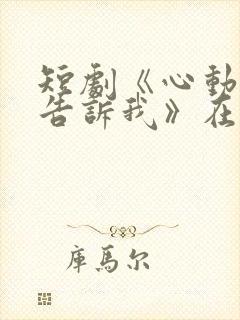 短劇《心動
告訴我》在
庫馬尔